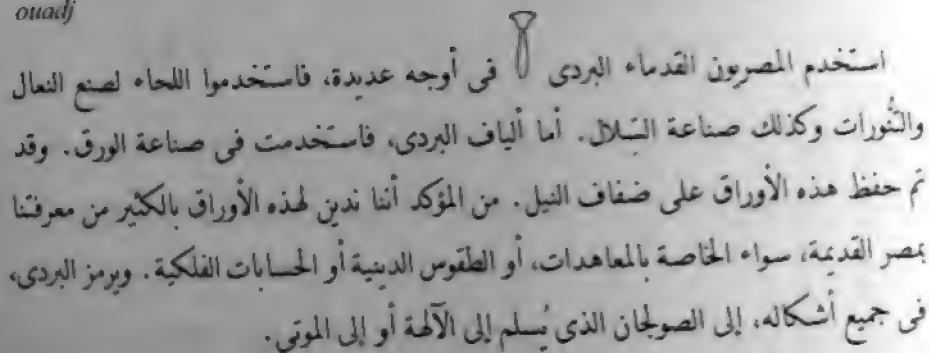 ouadj
استخدم المصريون القدماء البردى فى أوجه عديدة، فاستخدموا اللحاء لصنع النعال
والتنُّورات وكذلك صناعة السِّلال. أما ألياف البردى، فاستخدمت فى صناعة الورق. وقد
تم حفظ هذه الأوراق على ضفاف النيل. من المؤكد أننا ندين لهذه الأوراق بالكثير من معرفتنا
بمصر القديمة، سواء الخاصة بالمعاهدات، أو الطقوس الدينية أو الحسابات الفلكية. ويرمز البردى،
فى جميع أشكاله، إلى الصولجان الذى يُسلم إلى الآلهة أو إلى الموتى.